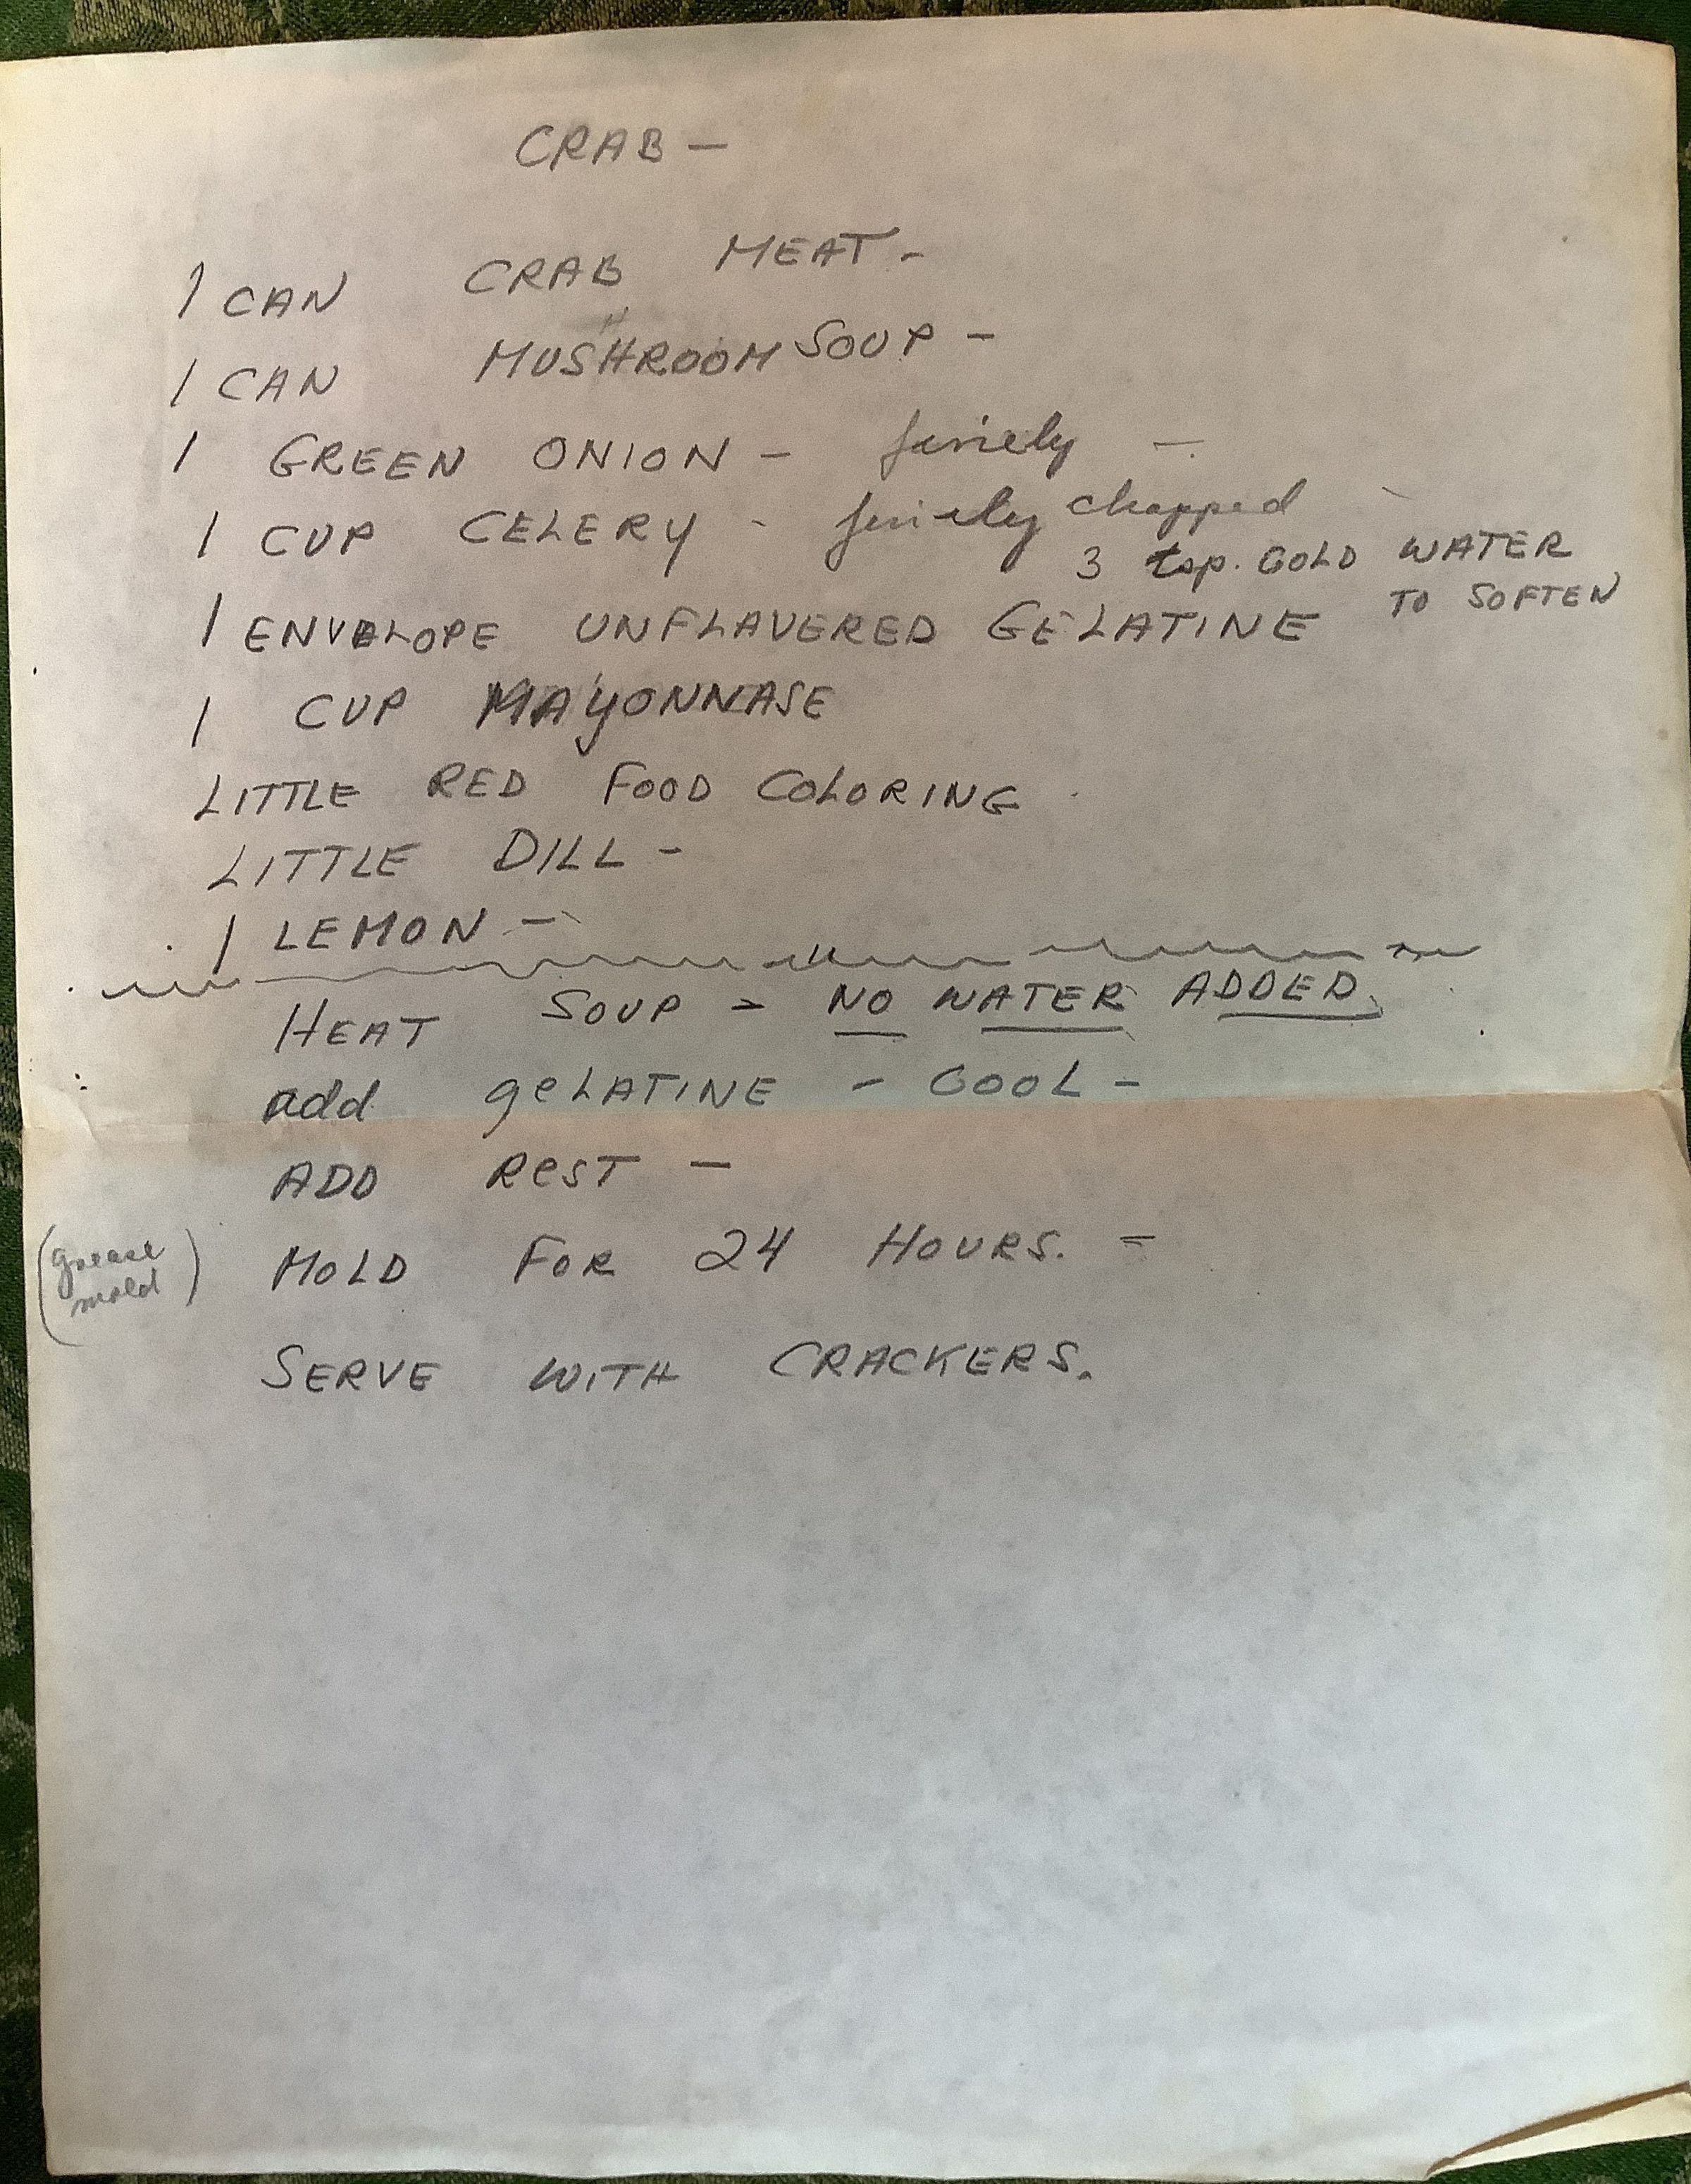 CRAB -
1 CAN CRAB MEAT -
1 CAN MUSHROOM SOUP -
1 GREEN ONION - finely -
1 CUP CELERY - finely chopped -
3 tsp. COLD WATER
TO SOFTEN
1 ENVELOPE UNFLAVERED GELATINE
1 CUP MAYONNASE
LITTLE RED FOOD COLORING
LITTLE DILL -
1 LEMON -
HEAT SOUP - NO WATER ADDED.
add geLATINE - COOL -
ADD ReST -
(grease
mold)
MOLD FOR 24 HOURS. =
SERVE WITH CRACKERS.